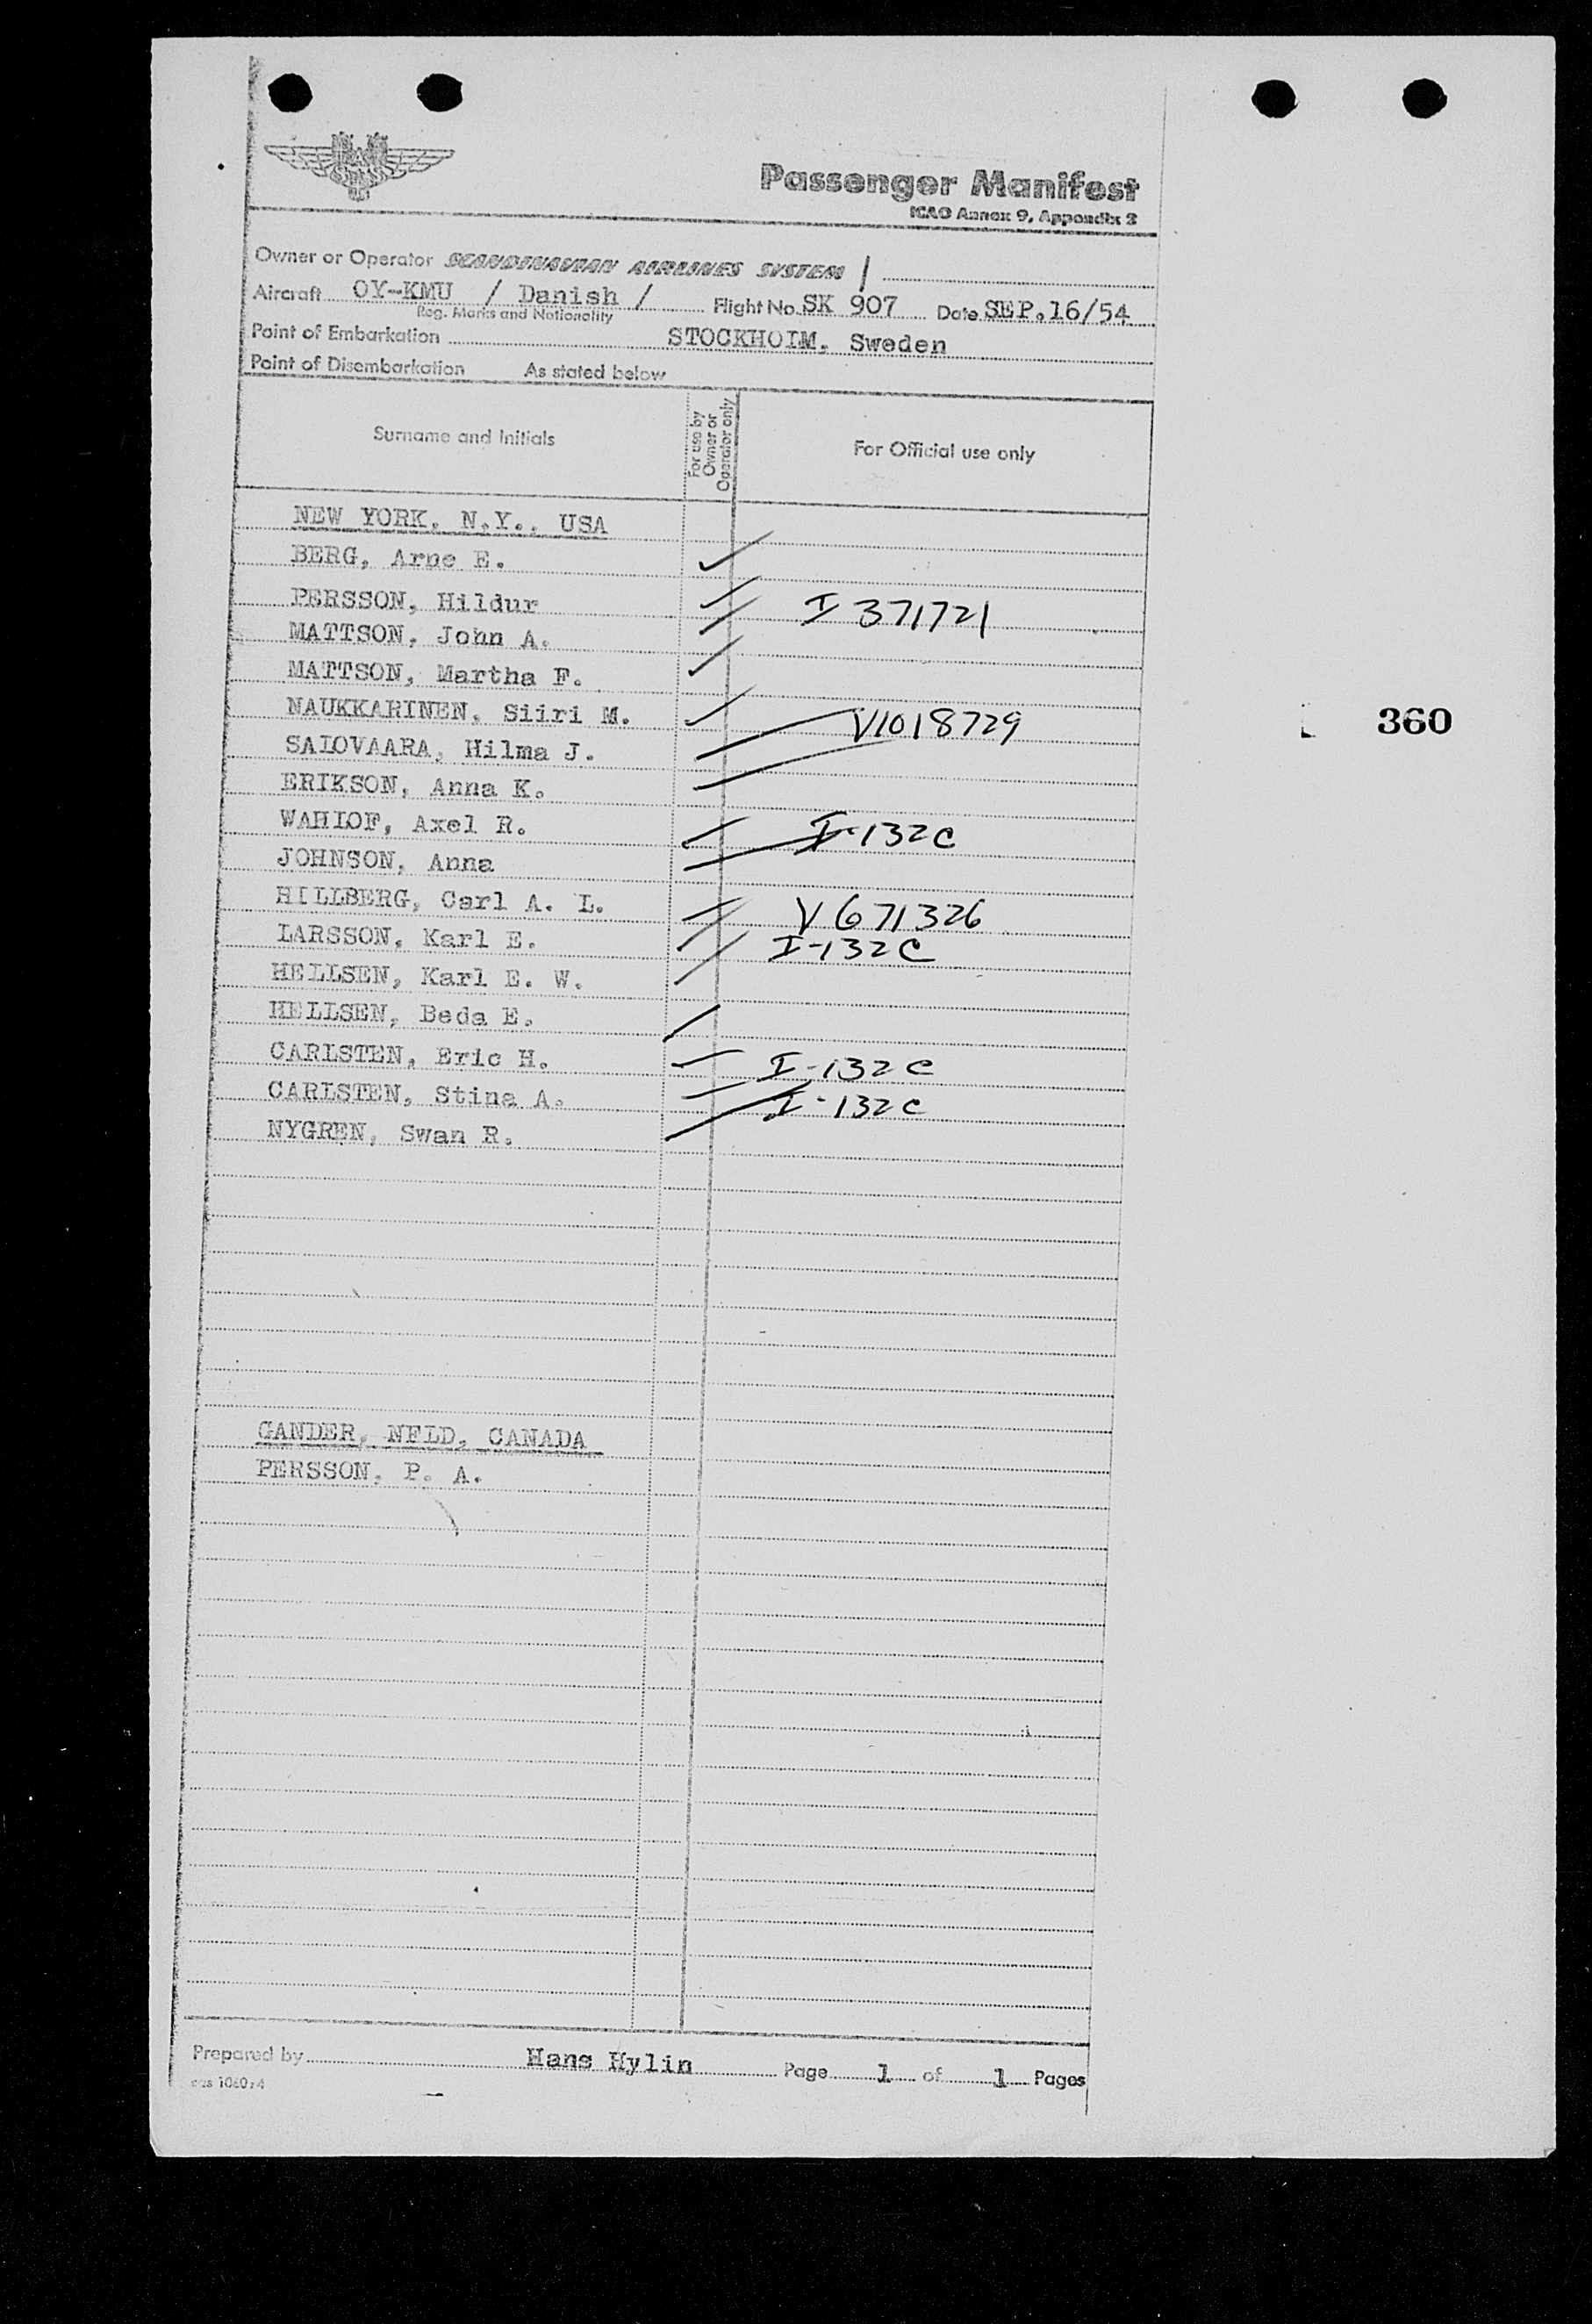 Passenger Manifest
ICAO Annex 9, Appendix 2
Owner or Operator SCANDINAVIAN AIRLINES SYSTEM /
Aircraft OY-KMU / Danish / Flight No. SK 907 Date SEP.16/54
Reg. Marks and Nationality
Point of Embarkation STOCKHOLM, Sweden
Point of Disembarkation As stated below
Surname and Initials For use by Owner or Operator only For Official use only
NEW YORK, N.Y., USA
BERG, Arne E.
PERSSON, Hildur I 371721
MATTSON, John A.
MATTSON, Martha F.
NAUKKARINEN, Siiri M. V1018729
360
SALOVAARA, Hilma J.
ERIKSON, Anna K.
WAHLOF, Axel R. I-132C
JOHNSON, Anna
HILLBERG, Carl A. L. V 671326
LARSSON, Karl E. I-132C
HELLSEN, Karl E. W.
HELLSEN, Beda E.
CARLSTEN, Eric H. I-132C
CARLSTEN, Stina A. I-132C
NYGREN, Swan R.
GANDER, NFLD, CANADA
PERSSON, P. A.
Prepared by Hans Hylin Page 1 of 1 Pages